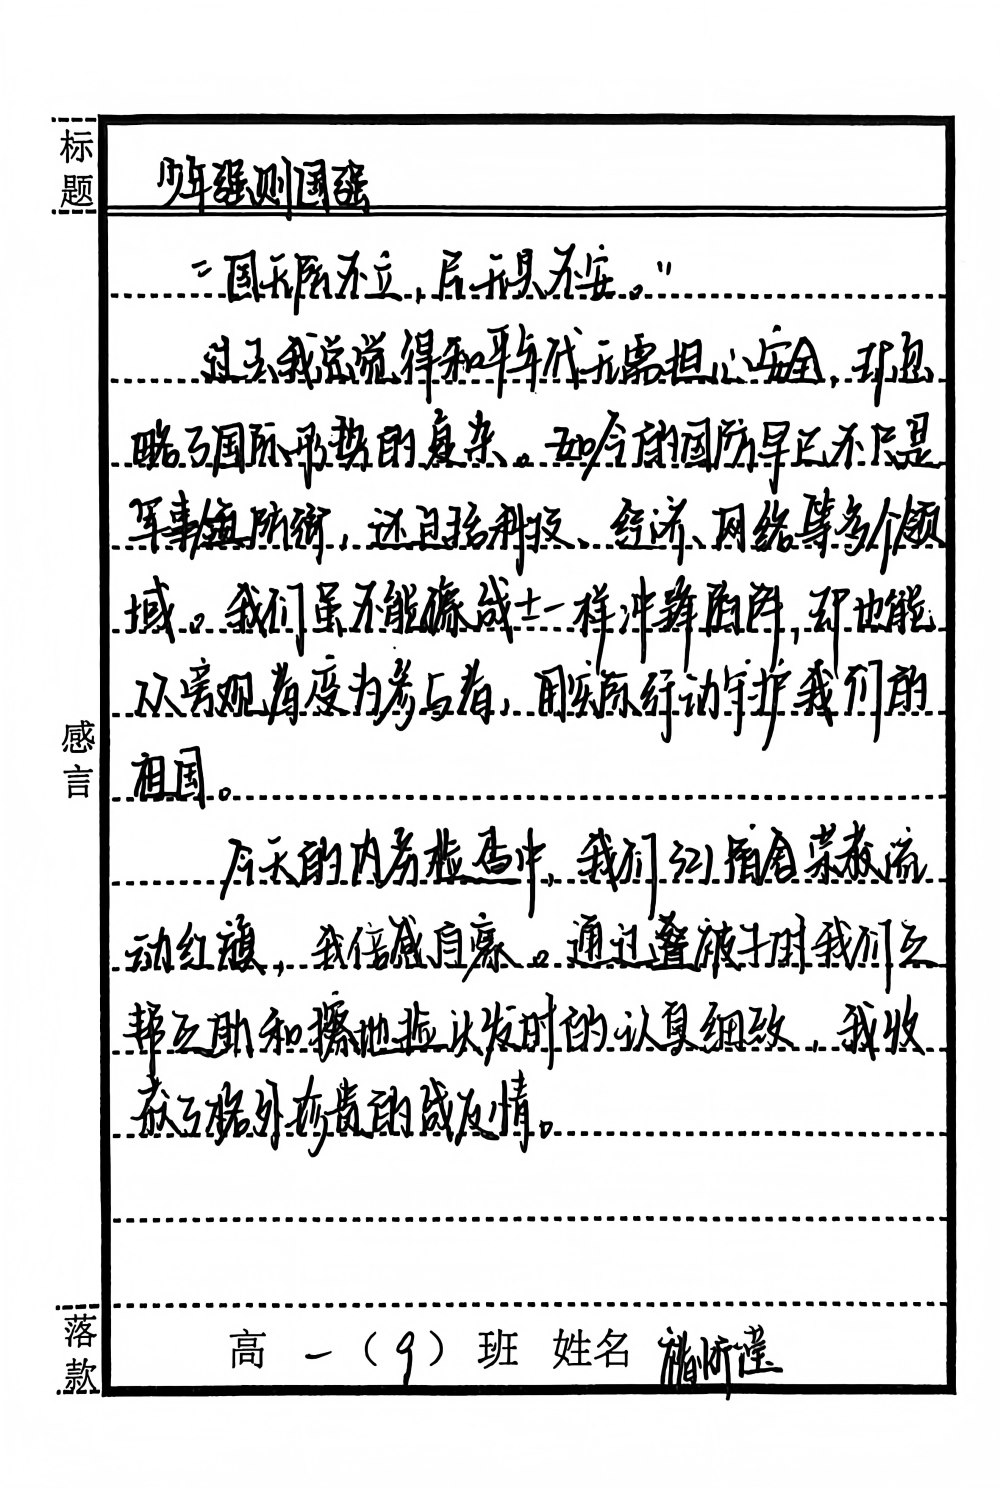 标题
少年强则国强
“国无防不立,民无兵不安。”
过去我总觉得和平年代无需担心安全,却忽
略了国际形势的复杂。如今的国防早已不只是
军事 防御,还包括科技、经济、网络等多个领
域。我们虽不能像战士一样冲锋陷阵,却也能
从旁观者变为参与者,用实际行动守护我们的
祖国。
今天的内务检查中,我们521宿舍荣获流
动红旗,我倍感自豪。通过叠被子时我们互
帮互助和擦地捡头发时的认真细致,我收
获了格外珍贵的战友情。
感言
落款
高一(9)班 姓名